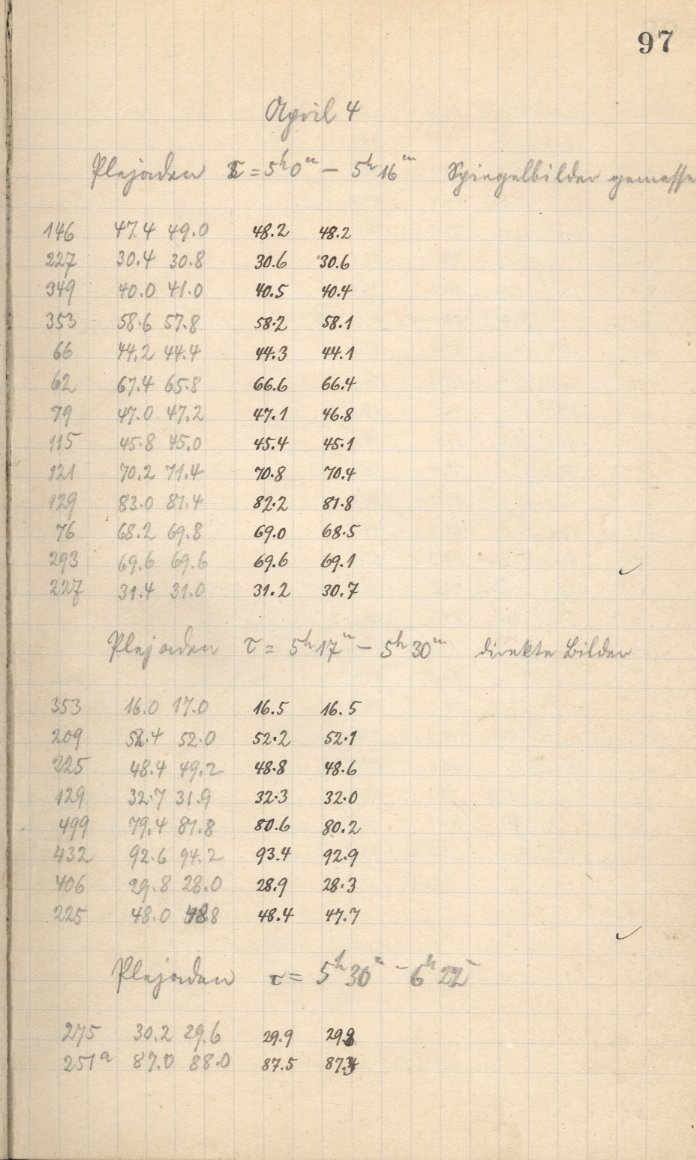 97
April 4
Plejaden τ = 5h 0m – 5h 16m Spiegelbilder gemesse
146 47.4 49.0 48.2 48.2
227 30.4 30.8 30.6 30.6
349 40.0 41.0 40.5 40.4
353 58.6 57.8 58.2 58.1
66 44.2 44.4 44.3 44.1
62 67.4 65.8 66.6 66.4
79 47.0 47.2 47.1 46.8
115 45.8 45.0 45.4 45.1
121 70.2 71.4 70.8 70.4
129 83.0 81.4 82.2 81.8
76 68.2 69.8 69.0 68.5
293 69.6 69.6 69.6 69.1
227 31.4 31.0 31.2 30.7
Plejaden τ = 5h 17m – 5h 30m direkte Bilder
353 16.0 17.0 16.5 16.5
209 52.4 52.0 52.2 52.1
225 48.4 49.2 48.8 48.6
129 32.7 31.9 32.3 32.0
499 79.4 81.8 80.6 80.2
432 92.6 94.2 93.4 92.9
406 29.8 28.0 28.9 28.3
225 48.0 48.8 48.4 47.7
Plejaden τ = 5h 30m – 6h 22m
275 30.2 29.6 29.9
251a 87.0 88.0 87.5